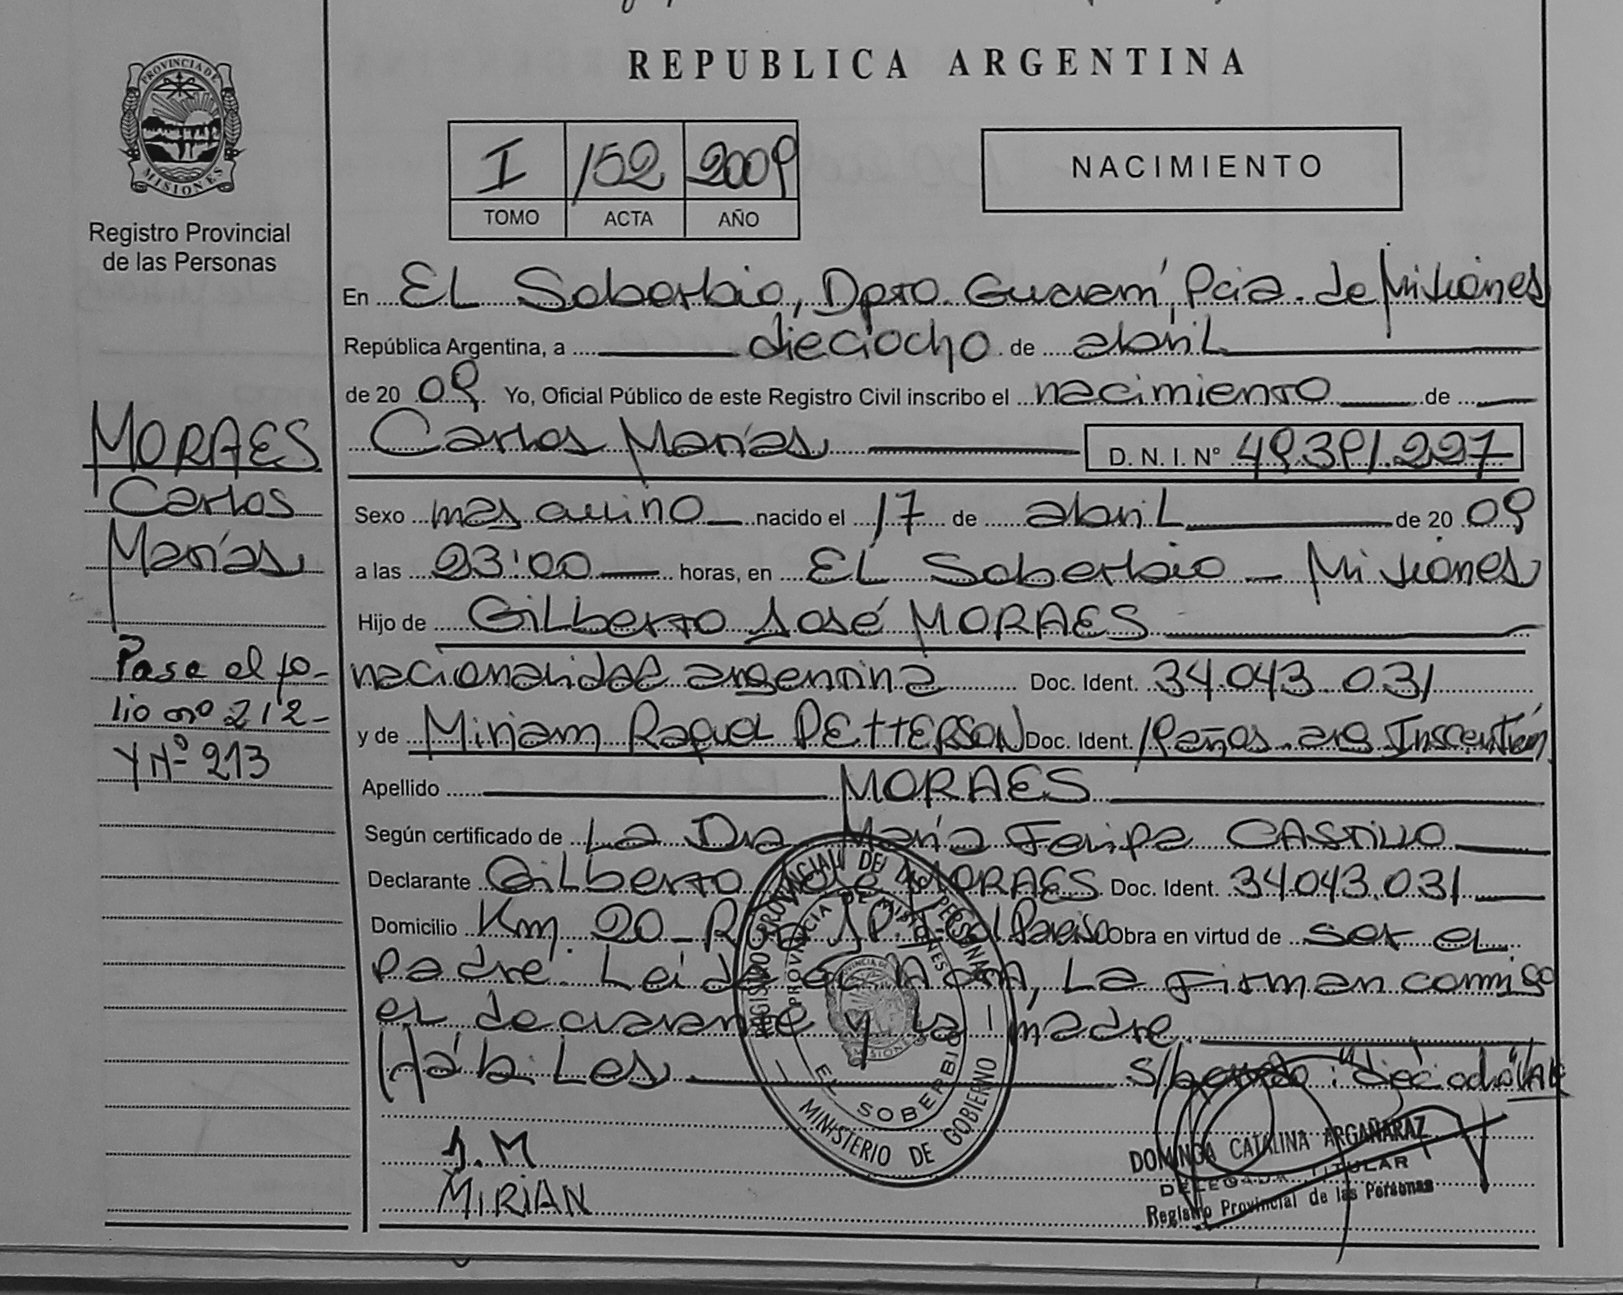 REPUBLICA ARGENTINA
PROVINCIA DE
MISIONES
Registro Provincial
de las Personas
I 152 2009
TOMO ACTA AÑO
NACIMIENTO
En EL Soberbio, Dpto. Guaraní, Pcia. de Misiones
República Argentina, a dieciocho de abril
de 20 09. Yo, Oficial Público de este Registro Civil inscribo el nacimiento de
Carlos Matías D. N. I. N° 49.391.227
Sexo masculino nacido el 17 de abril de 20 09
a las 23:00 horas, en EL Soberbio - Misiones
Hijo de Gilberto José MORAES
nacionalidad argentina Doc. Ident. 34.043.031
y de Miriam Raquel PETTERSON Doc. Ident.
Apellido MORAES
Según certificado de La Dra María Felipa CASTILLO
Declarante Gilberto José MORAES Doc. Ident. 34.043.031
Domicilio Km. 20 - Ruta Obra en virtud de ser el
padre. Leída el Acta, La Firman conmigo
el declarante y la madre.
Hábiles S/borrado: "dieciocho" VALE
MORAES
Carlos
Matías
Pase el fo-
lio nº 212-
Y Nº 213
J.M
MIRIAN
REGISTRO PROVINCIAL DE LAS PERSONAS
PROVINCIA DE MISIONES
EL SOBERBIO
MINISTERIO DE GOBIERNO
DOMINGA CATALINA ARGAÑARAZ
DELEGADA TITULAR
Registro Provincial de las Personas